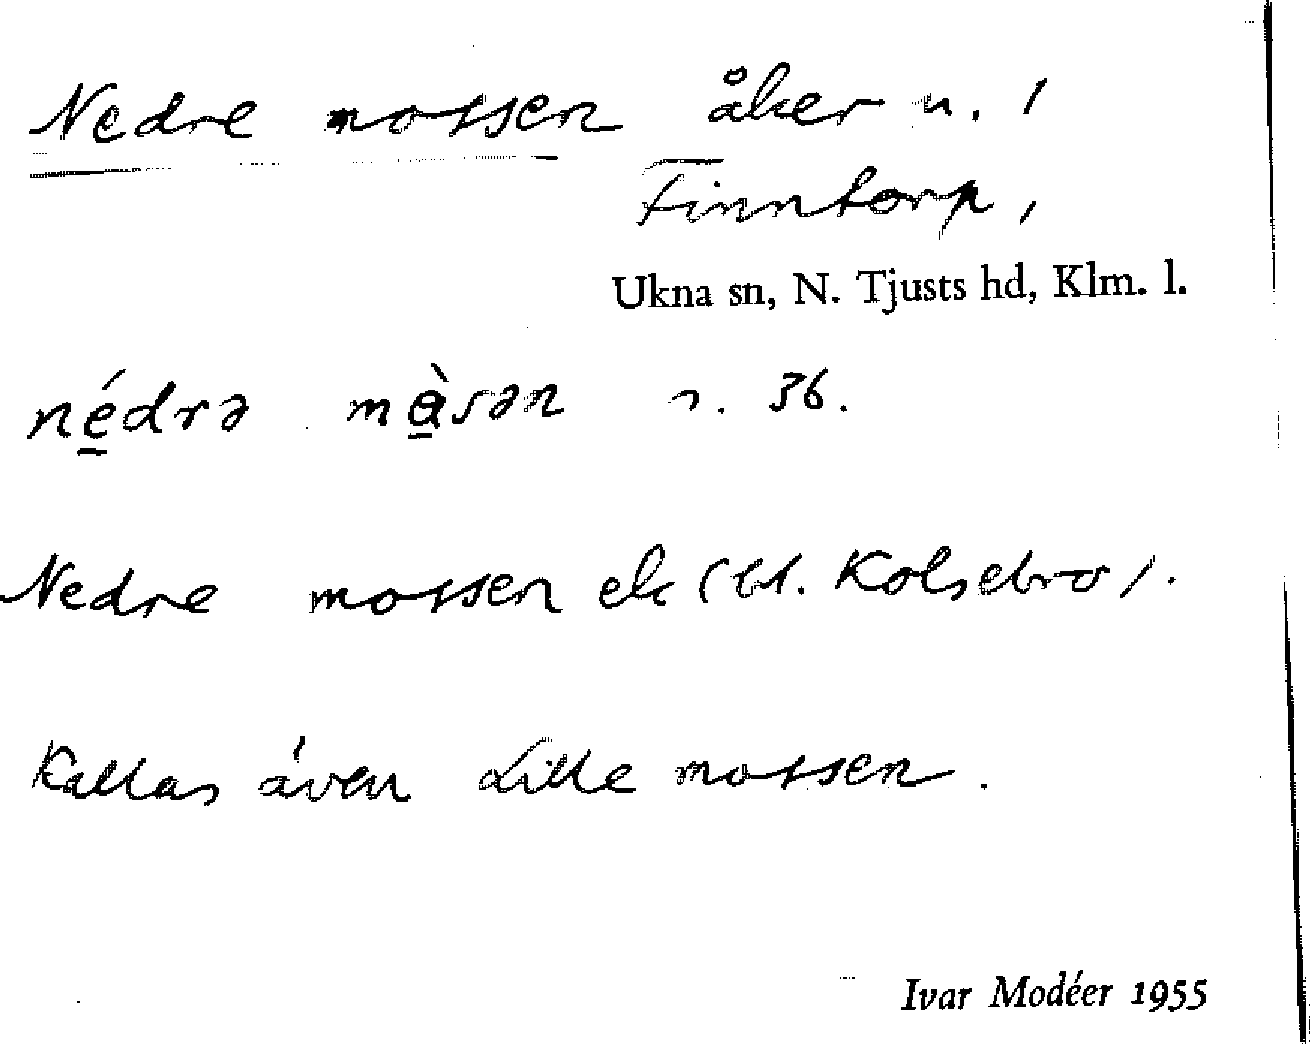 Nedre mossen åker u. /
Finntorp,
Ukna sn, N. Tjusts hd, Klm. l.
nédrə màsən n. 36.
Nedre mossen ek (bl. Kolsebro).
Kallas även Lille mossen.
Ivar Modéer 1955